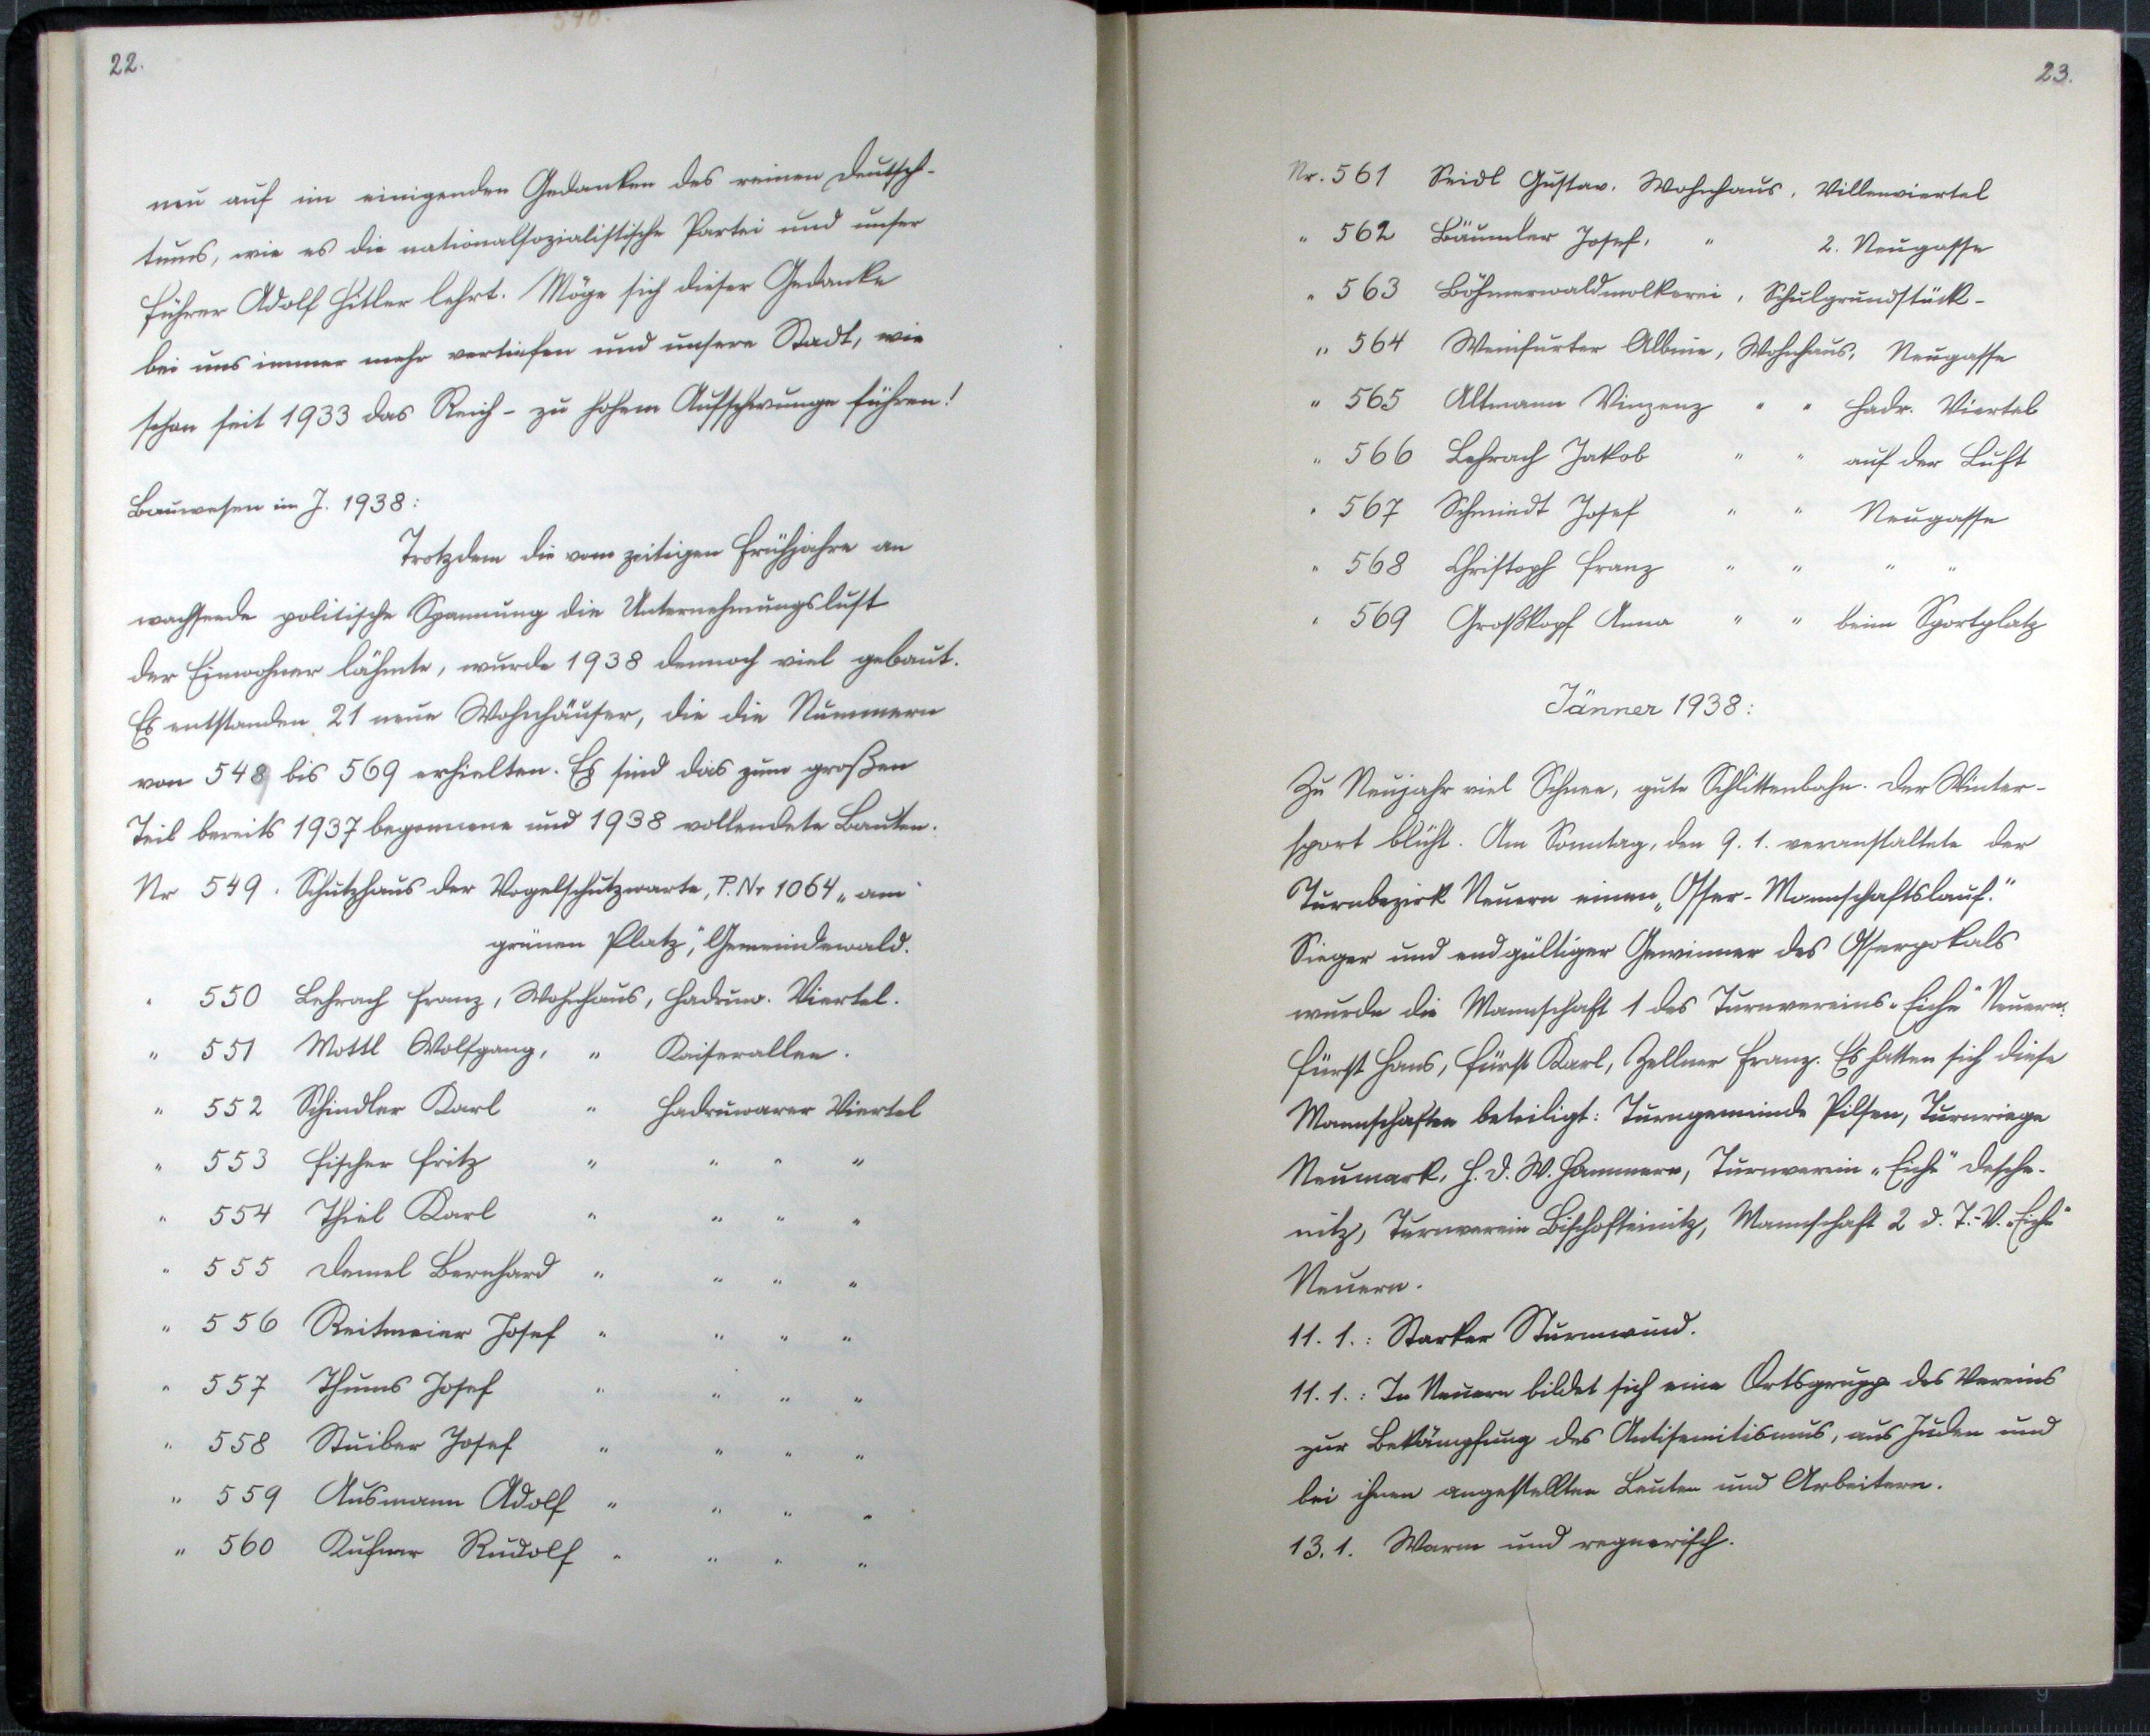 22.
neu auf im einigenden Gedanken des reinen Deutsch-
tums, wie es die nationalsozialistische Partei und unser
Führer Adolf Hitler lehrt. Möge sich dieser Gedanke
bei uns immer mehr vertiefen und unsere Stadt, wie
schon seit 1933 das Reich - zu hohem Aufschwunge führen!
Bauwesen im J. 1938:
Trotzdem die vom zeitigen Frühjahre an
wachsende politische Spannung die Unternehmungslust
der Einwohner lähmte, wurde 1938 dennoch viel gebaut.
Es entstanden 21 neue Wohnhäuser, die die Nummern
von 549 bis 569 erhielten. Es sind das zum großen
Teil bereits 1937 begonnene und 1938 vollendete Bauten.
Nr 549. Schutzhaus der Vogelschutzwarte, P. Nr 1064 „am
grünen Platz", Gemeindewald.
" 550 Lehrach Franz, Wohnhaus, Hadruw. Viertel.
" 551 Mottl Wolfgang, " Kaiserallee.
" 552 Schindler Karl " Hadruwarer Viertel
" 553 Fischer Fritz " " " "
" 554 Thiel Karl " " " "
" 555 Demel Bernhard " " " "
" 556 Reitmeier Josef " " " "
" 557 Thums Josef " " " "
" 558 Stuiber Josef " " " "
" 559 Ausmann Adolf " " " "
" 560 Kufner Rudolf " " " "
23.
Nr. 561 Seidl Gustav, Wohnhaus, Villenviertel
" 562 Bäumler Josef, " 2. Neugasse
" 563 Böhmerwaldmolkerei, Schulgrundstück-
" 564 Weinfurter Albine, Wohnhaus, Neugasse
" 565 Altmann Vinzenz " " Hadr. Viertel
" 566 Lehrach Jakob " " auf der Luft
" 567 Schmiedt Josef " " Neugasse
" 568 Christoph Franz " " " "
" 569 Großkopf Anna " " beim Sportplatz
Jänner 1938:
Zu Neujahr viel Schnee, gute Schlittenbahn. Der Winter-
sport blüht. Am Sonntag, den 9. 1. veranstaltete der
Turnbezirk Neuern einen „Osser-Mannschaftslauf."
Sieger und endgültiger Gewinner des Osserpokals
wurde die Mannschaft 1 des Turnvereins „Eiche" Neuern:
Fürst Hans, Fürst Karl, Zellner Franz. Es hatten sich diese
Mannschaften beteiligt: Turngemeinde Pilsen, Turnriege
Neumark, H. D. W. Hammern, Turnverein „Eiche" Desche-
nitz, Turnverein Bischofteinitz, Mannschaft 2 d. T.-V. „Eiche"
Neuern.
11. 1.: Starker Sturmwind.
11. 1.: In Neuern bildet sich eine Ortsgruppe des Vereins
zur Bekämpfung des Antisemitismus, aus Juden und
bei ihnen angestellten Leuten und Arbeitern.
13. 1. Warm und regnerisch.